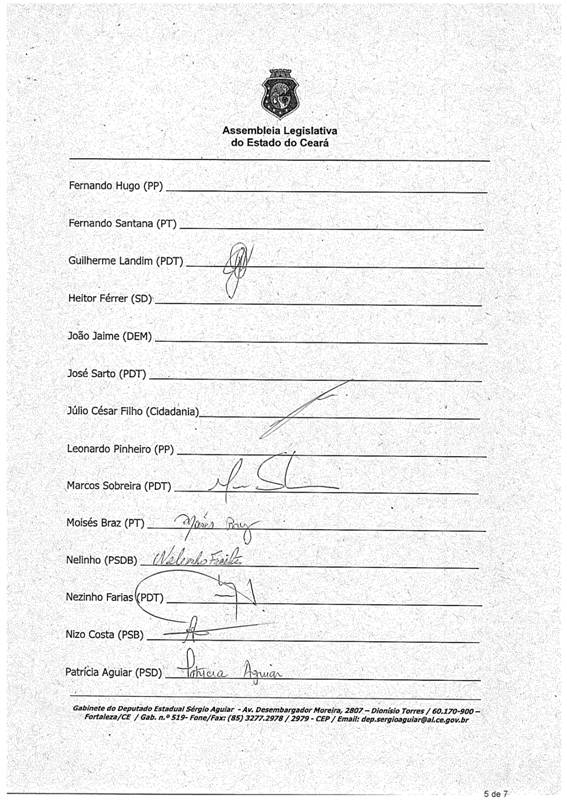 Assembleia Legislativa
do Estado do Ceará
Fernando Hugo (PP)
Fernando Santana (PT)
Guilherme Landim (PDT)
Heitor Férrer (SD)
João Jaime (DEM)
José Sarto (PDT)
Júlio César Filho (Cidadania)
Leonardo Pinheiro (PP)
Marcos Sobreira (PDT)
Moisés Braz (PT) Moisés Braz
Nelinho (PSDB) Nelinho Freitas
Nezinho Farias (PDT)
Nizo Costa (PSB)
Patrícia Aguiar (PSD) Patrícia Aguiar
Gabinete do Deputado Estadual Sérgio Aguiar - Av. Desembargador Moreira, 2807 – Dionísio Torres / 60.170-900 –
Fortaleza/CE / Gab. n.º 519- Fone/Fax: (85) 3277.2978 / 2979 - CEP / Email: dep.sergioaguiar@al.ce.gov.br
5 de 7